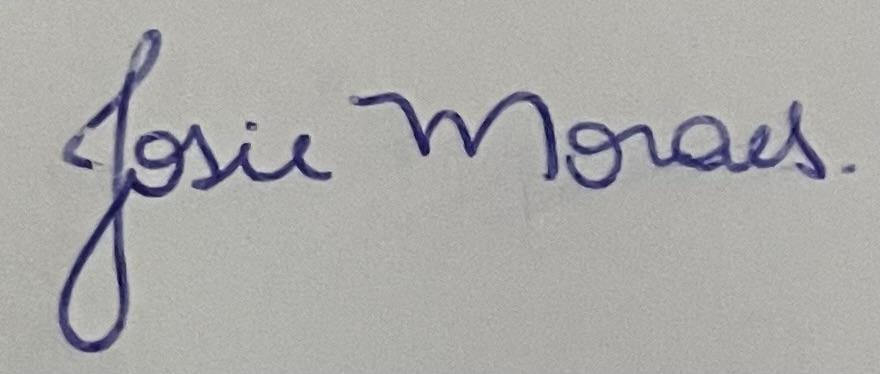 Josie Moraes.